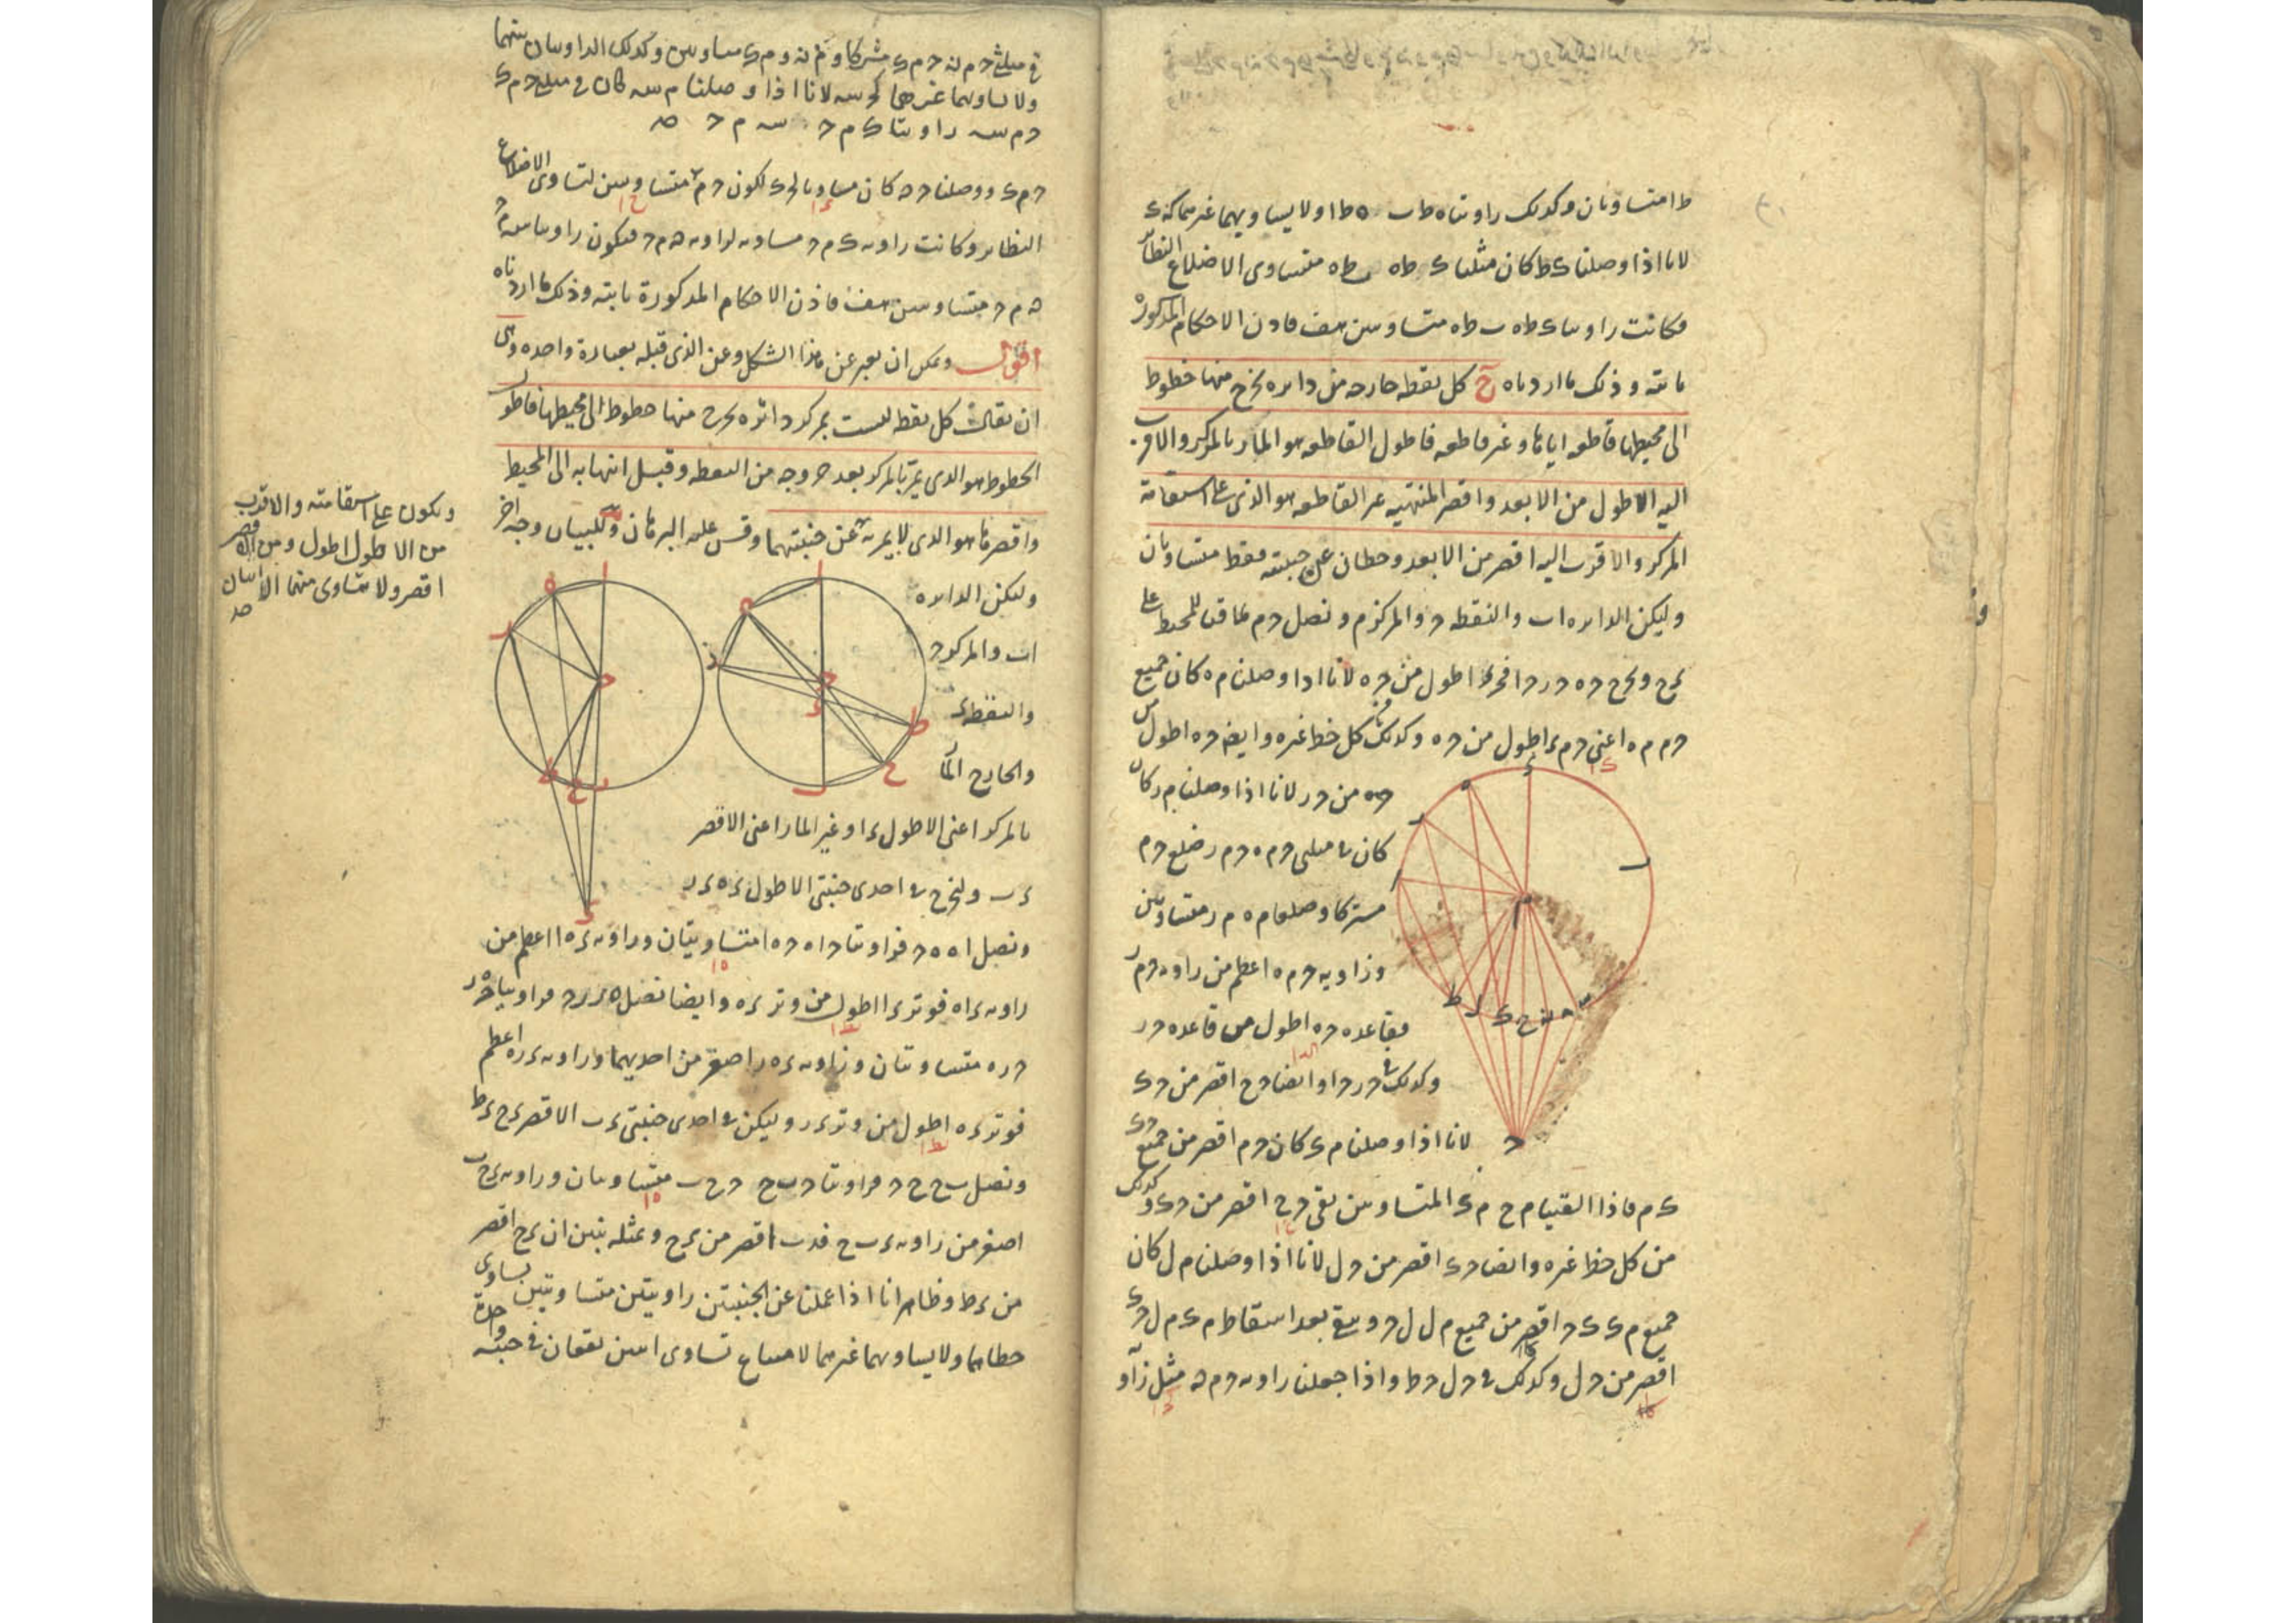 ط ا متساويان وكذلك زاويتاه ط ب ه ط ا ولا يساويهما غيرهما كه ى
لانا اذا وصلنا ى ط كان مثلثا ى ط ه ب ط ه متساوى الاضلاع النظائر
فكانت زاويتا ى ط ه ب ط ه متساويتين هف فاذن الاحكام المذكورة
ثابتة وذلك ما اردناه ح كل نقطه خارجه من دايره يخرج منها خطوط
الى محيطها قاطعه اياها وغير قاطعه فاطول القاطعه هو المار بالمركز والاقرب
اليه اطول من الابعد واقصر المنتهيه غير القاطعه هو الذى على استقامة
المركز والاقرب اليه اقصر من الابعد وخطان عن جنبتيه فقط متساويان
وليكن الدايره اب والنقطه ح والمركز م ونصل ح م
يخرج ح ه ح ر ح ا اطول من ح ه لانا اذا وصلنا م ه كان جميع
ح م م ه اعنى اطول من ح ه وكذلك كل خط غيره وايضا ح ه اطول
من ح ر لانا اذا وصلنا م ر كان
كان فى مثلثى ح م ه ح م ر ضلع ح م
مشتركا وضلعا م ه م ر متساويين
وزاويه ح م ه اعظم من زاويه ح م ر
فقاعده ح ه اطول من قاعده ح ر
وكذلك فى ح ر ح ا وايضا ح ح اقصر من ح ى
لانا اذا وصلنا م ى كان ح م اقصر من جميع ح ى
ى م فاذا القينا م ح م ى المتساويين بقى ح ح اقصر من ح ى وكذلك
من كل خط غيره وايضا ح ى اقصر من ح ل لانا اذا وصلنا م ل كان
جميع م ى ى ح اقصر من جميع م ل ل ح وبقى بعد اسقاط م ى م ل ح ى
اقصر من ح ل وكذلك فى ح ل ح ط واذا جعلنا زاويه ح م ن مثل زاويه
فى مثلثى ح م ن ح م ى مشتركا و م ن و م ى متساويين وكذلك الزاويتان بينهما
ولا يساويهما غيرهما كح س لانا اذا وصلنا م س كان فى مثلثى ح م ى
ح م س زاويتا ى م ح س م ح
ح م ى ووصلنا ح ن كان مساويا لح ى لكون ح م متساويين لتساوى الاضلاع
النظائر وكانت زاويه ى م ح مساويه لزاويه ن م ح فيكون زاويتا س م ح
ن م ح متساويتين هف فاذن الاحكام المذكورة ثابتة وذلك ما اردناه
اقول ويمكن ان يعبر عن هذا الشكل وعن الذى قبله بعبارة واحده وهى
ان يقال كل نقطه ليست بمركز دائره يخرج منها خطوط الى محيطها فاطول
الخطوط هو الذى يمر بالمركز بعد خروجه من النقطه وقبل انتهائه الى المحيط
واقصرها هو الذى لا يمر به عن جنبتيهما وقس عليه البرهان وللبيان وجه اخر
ويكون على استقامته والاقرب
من الاطول اطول ومن الاقصر
اقصر ولا يتساوى منها الا اثنان
وليكن الدايره
اب والمركز ح
والنقطه ى
والخارج المار
بالمركز اعنى الاطول ى ا وغير المار اعنى الاقصر
ى ب وليخرج فى احدى جنبتى الاطول ى ه ى ر
ونصل ا ه ه ح فزاويتا ح ا ه ح ه ا متساويتان وزاويه ى ه ا اعظم من
زاويه ى ا ه فوتر ى ا اطول من وتر ى ه وايضا نصل ه ر ر ح فزاويتا ح ه ر
ح ر ه متساويتان وزاويه ى ه ر اصغر من احديهما وزاويه ى ر ه اعظم
فوتر ى ه اطول من وتر ى ر وليكن فى احدى جنبتى ى ب الاقصر ى ح ى ط
ونصل ب ح ح ح فزاويتا ح ب ح ح ح ب متساويتان وزاويه ى ح ب
اصغر من زاويه ى ب ح فى ب اقصر من ى ح وبمثله يتبين ان ى ح اقصر
من ى ط وظاهر انا اذا عملنا عن الجنبتين زاويتين متساويتين يساوى
خطاهما ولا يساويهما غيرهما لامتناع تساوى اثنين يقعان فى جنبة واحدة